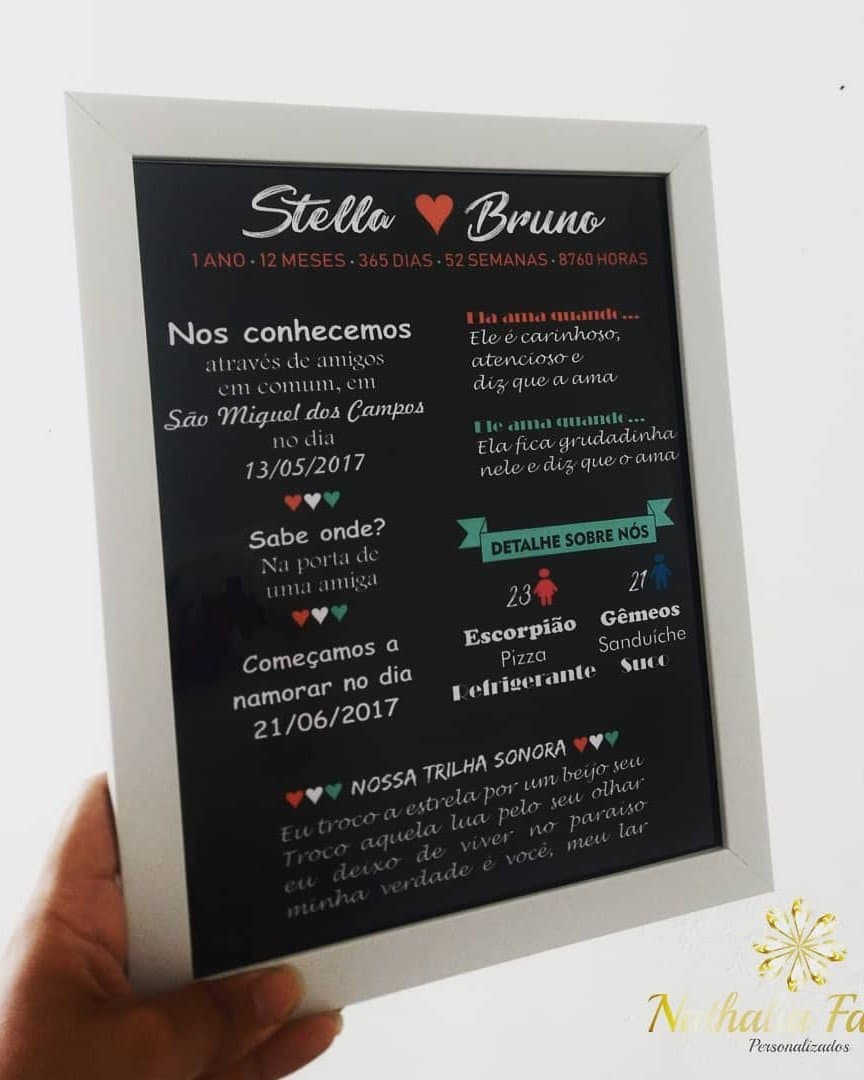 Stella Bruno
1 ANO · 12 MESES · 365 DIAS · 52 SEMANAS · 8760 HORAS
Nos conhecemos
através de amigos
em comum, em
São Miguel dos Campos
no dia
13/05/2017
Sabe onde?
Na porta de
uma amiga
Começamos a
namorar no dia
21/06/2017
Ela ama quando...
Ele é carinhoso,
atencioso e
diz que a ama
Ele ama quando...
Ela fica grudadinha
nele e diz que o ama
DETALHE SOBRE NÓS
23
Escorpião
Pizza
Refrigerante
21
Gêmeos
Sanduíche
Suco
NOSSA TRILHA SONORA
Eu troco a estrela por um beijo seu
Troco aquela lua pelo seu olhar
eu deixo de viver no paraíso
minha verdade é você, meu lar
Personalizados